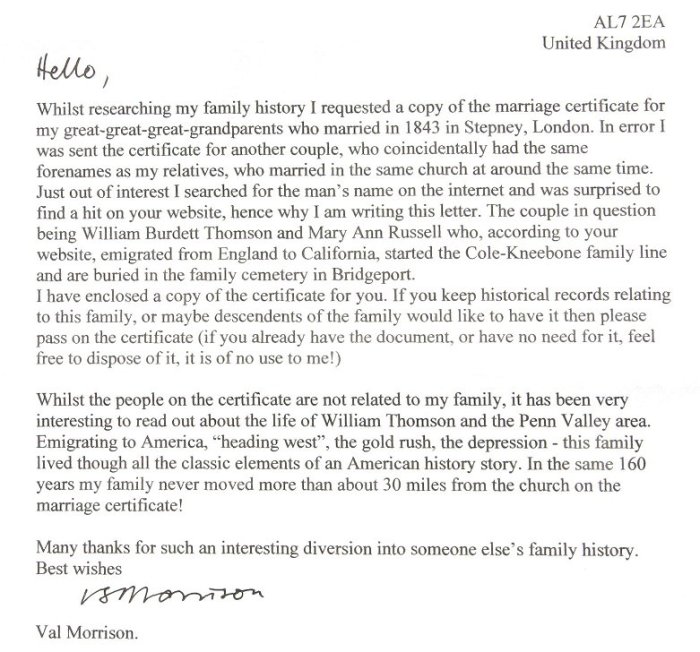 AL7 2EA
United Kingdom
Hello,
Whilst researching my family history I requested a copy of the marriage certificate for
my great-great-great-grandparents who married in 1843 in Stepney, London. In error I
was sent the certificate for another couple, who coincidentally had the same
forenames as my relatives, who married in the same church at around the same time.
Just out of interest I searched for the man's name on the internet and was surprised to
find a hit on your website, hence why I am writing this letter. The couple in question
being William Burdett Thomson and Mary Ann Russell who, according to your
website, emigrated from England to California, started the Cole-Kneebone family line
and are buried in the family cemetery in Bridgeport.
I have enclosed a copy of the certificate for you. If you keep historical records relating
to this family, or maybe descendents of the family would like to have it then please
pass on the certificate (if you already have the document, or have no need for it, feel
free to dispose of it, it is of no use to me!)
Whilst the people on the certificate are not related to my family, it has been very
interesting to read out about the life of William Thomson and the Penn Valley area.
Emigrating to America, “heading west”, the gold rush, the depression - this family
lived though all the classic elements of an American history story. In the same 160
years my family never moved more than about 30 miles from the church on the
marriage certificate!
Many thanks for such an interesting diversion into someone else's family history.
Best wishes
VSMorrison
Val Morrison.